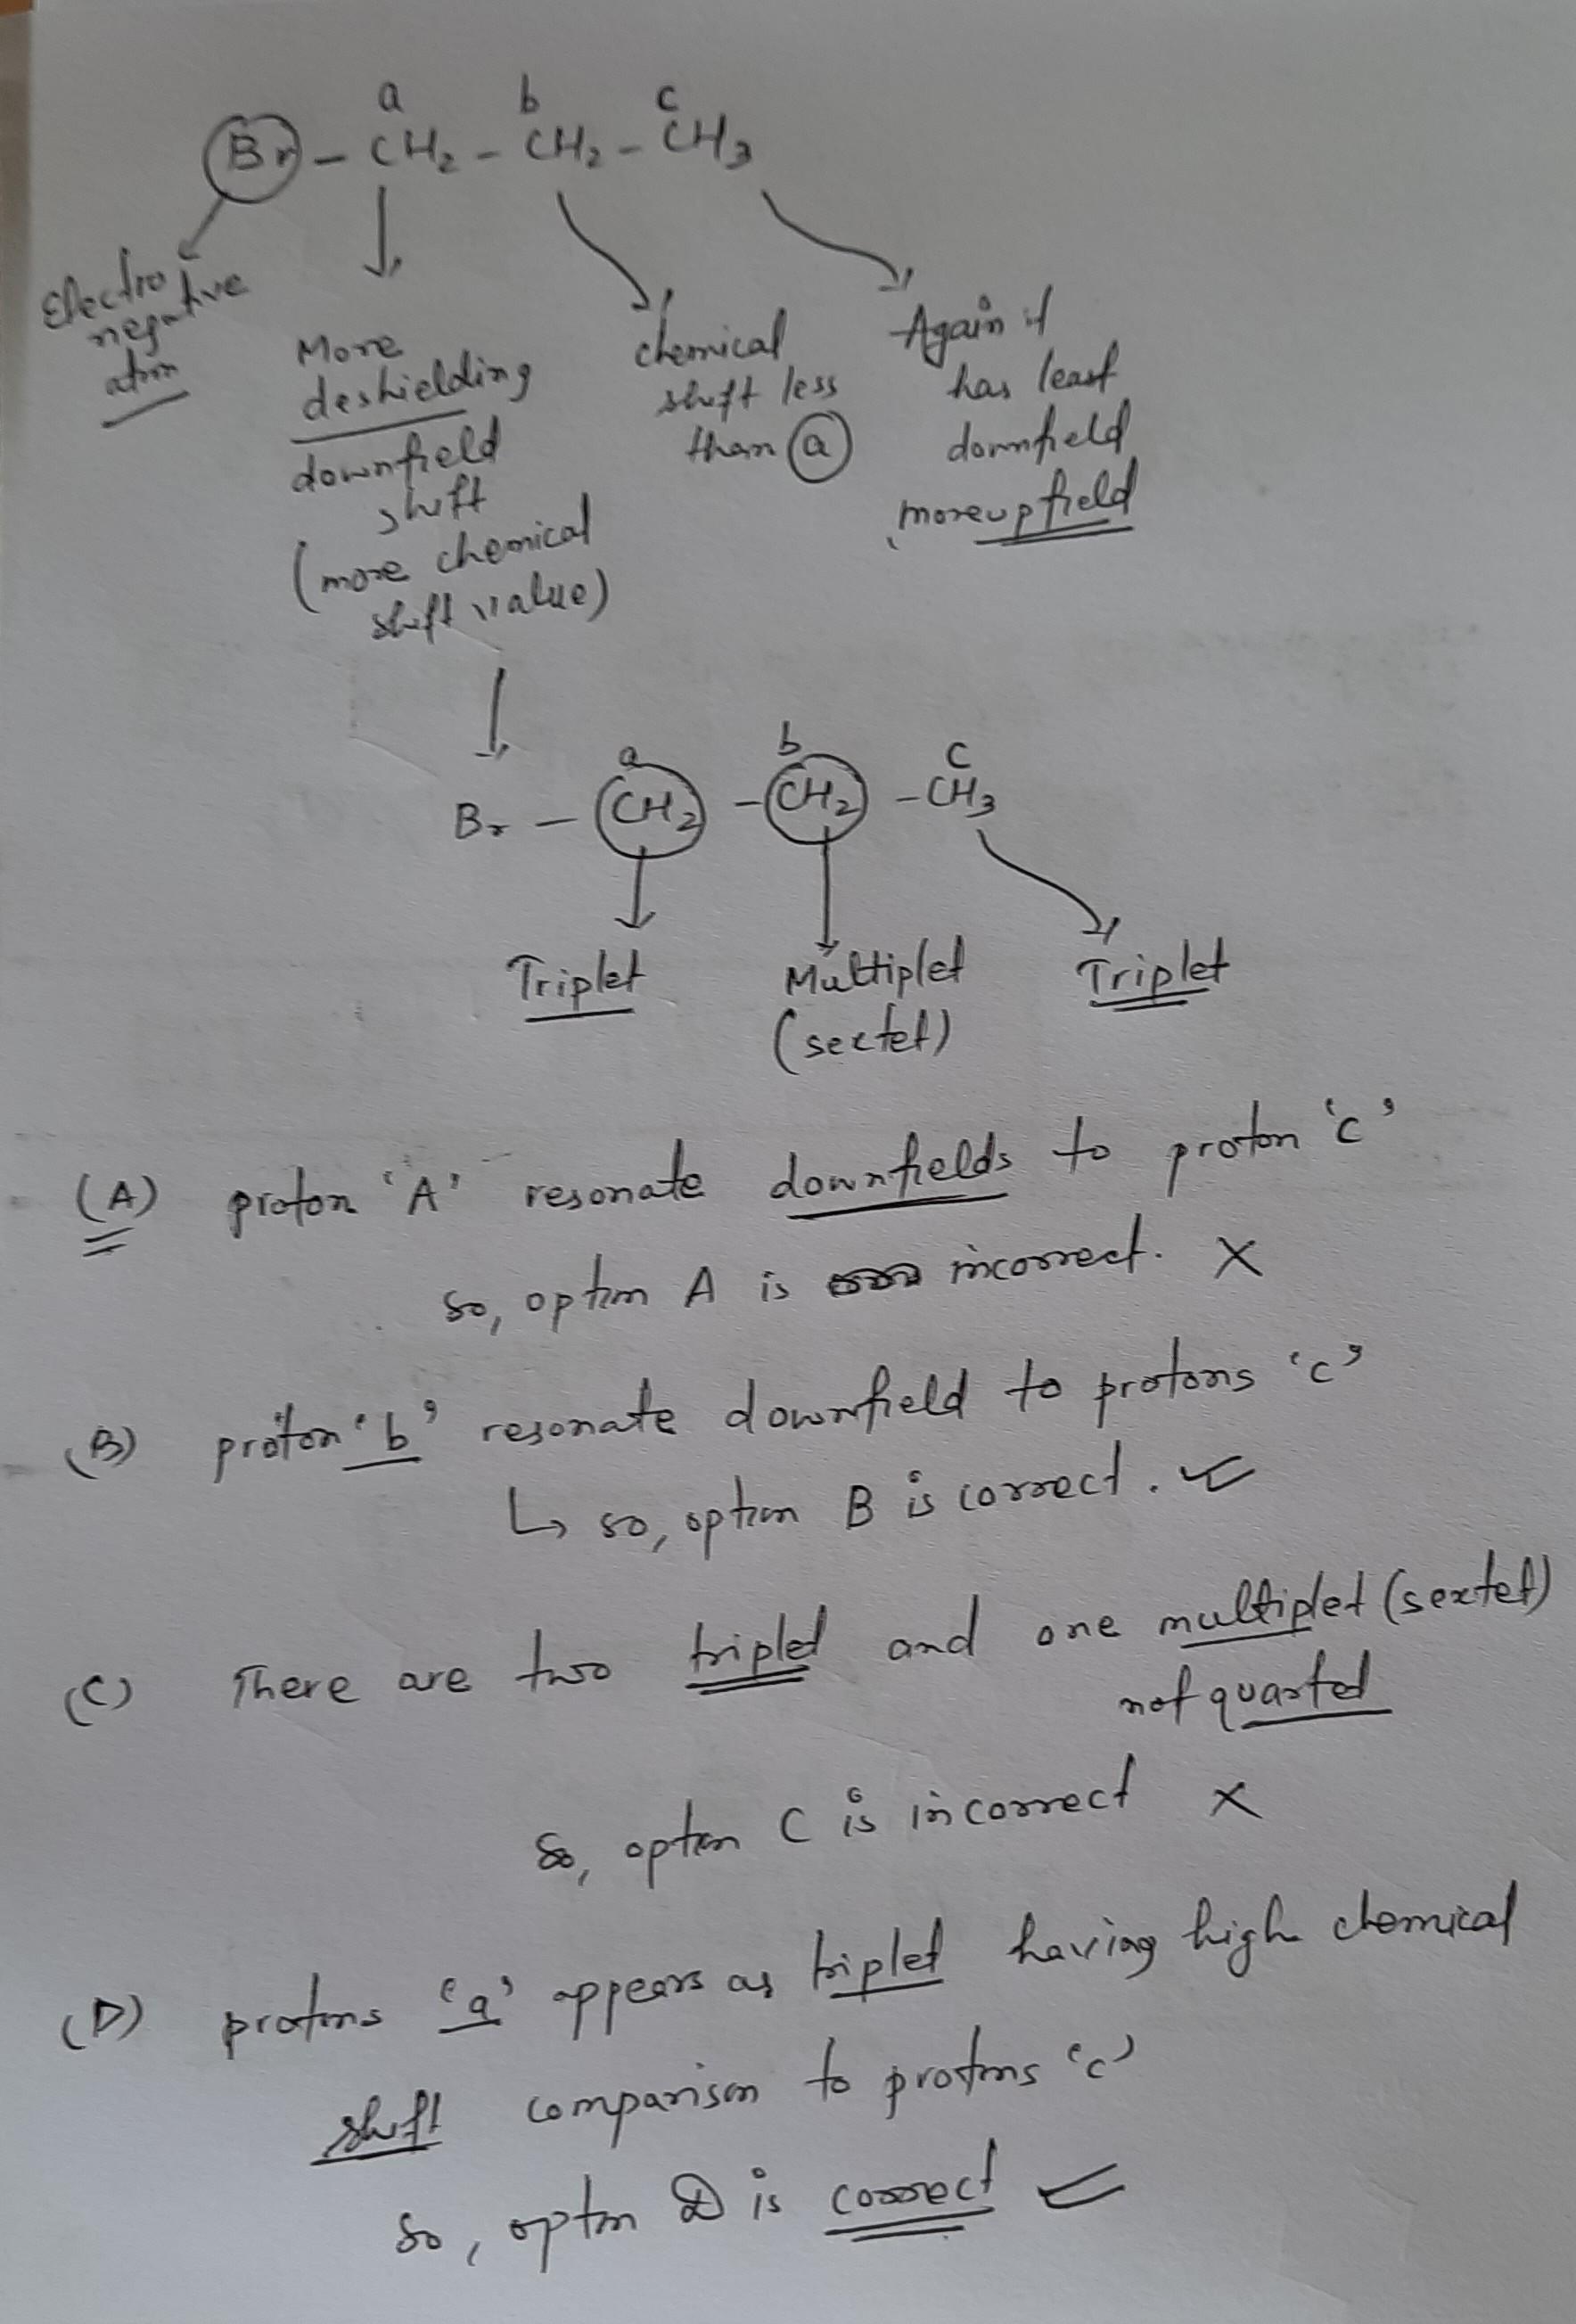 a b c
Br - CH₂ - CH₂ - CH₃
Electro
negative
atom
More
deshielding
downfield
shift
(more chemical
shift value)
chemical
shift less
than a
Again it
has least
downfield
more upfield
a b c
Br - CH₂ - CH₂ - CH₃
Triplet Multiplet Triplet
(sextet)
(A) proton 'A' resonate downfields to proton 'c'
so, option A is incorrect. X
(B) proton 'b' resonate downfield to protons 'c'
↳ so, option B is correct.
(C) There are two triplet and one multiplet (sextet)
not quarted
So, option C is incorrect X
(D) protons 'a' appears as triplet having high chemical
shift comparison to protons 'c'
So, option D is correct